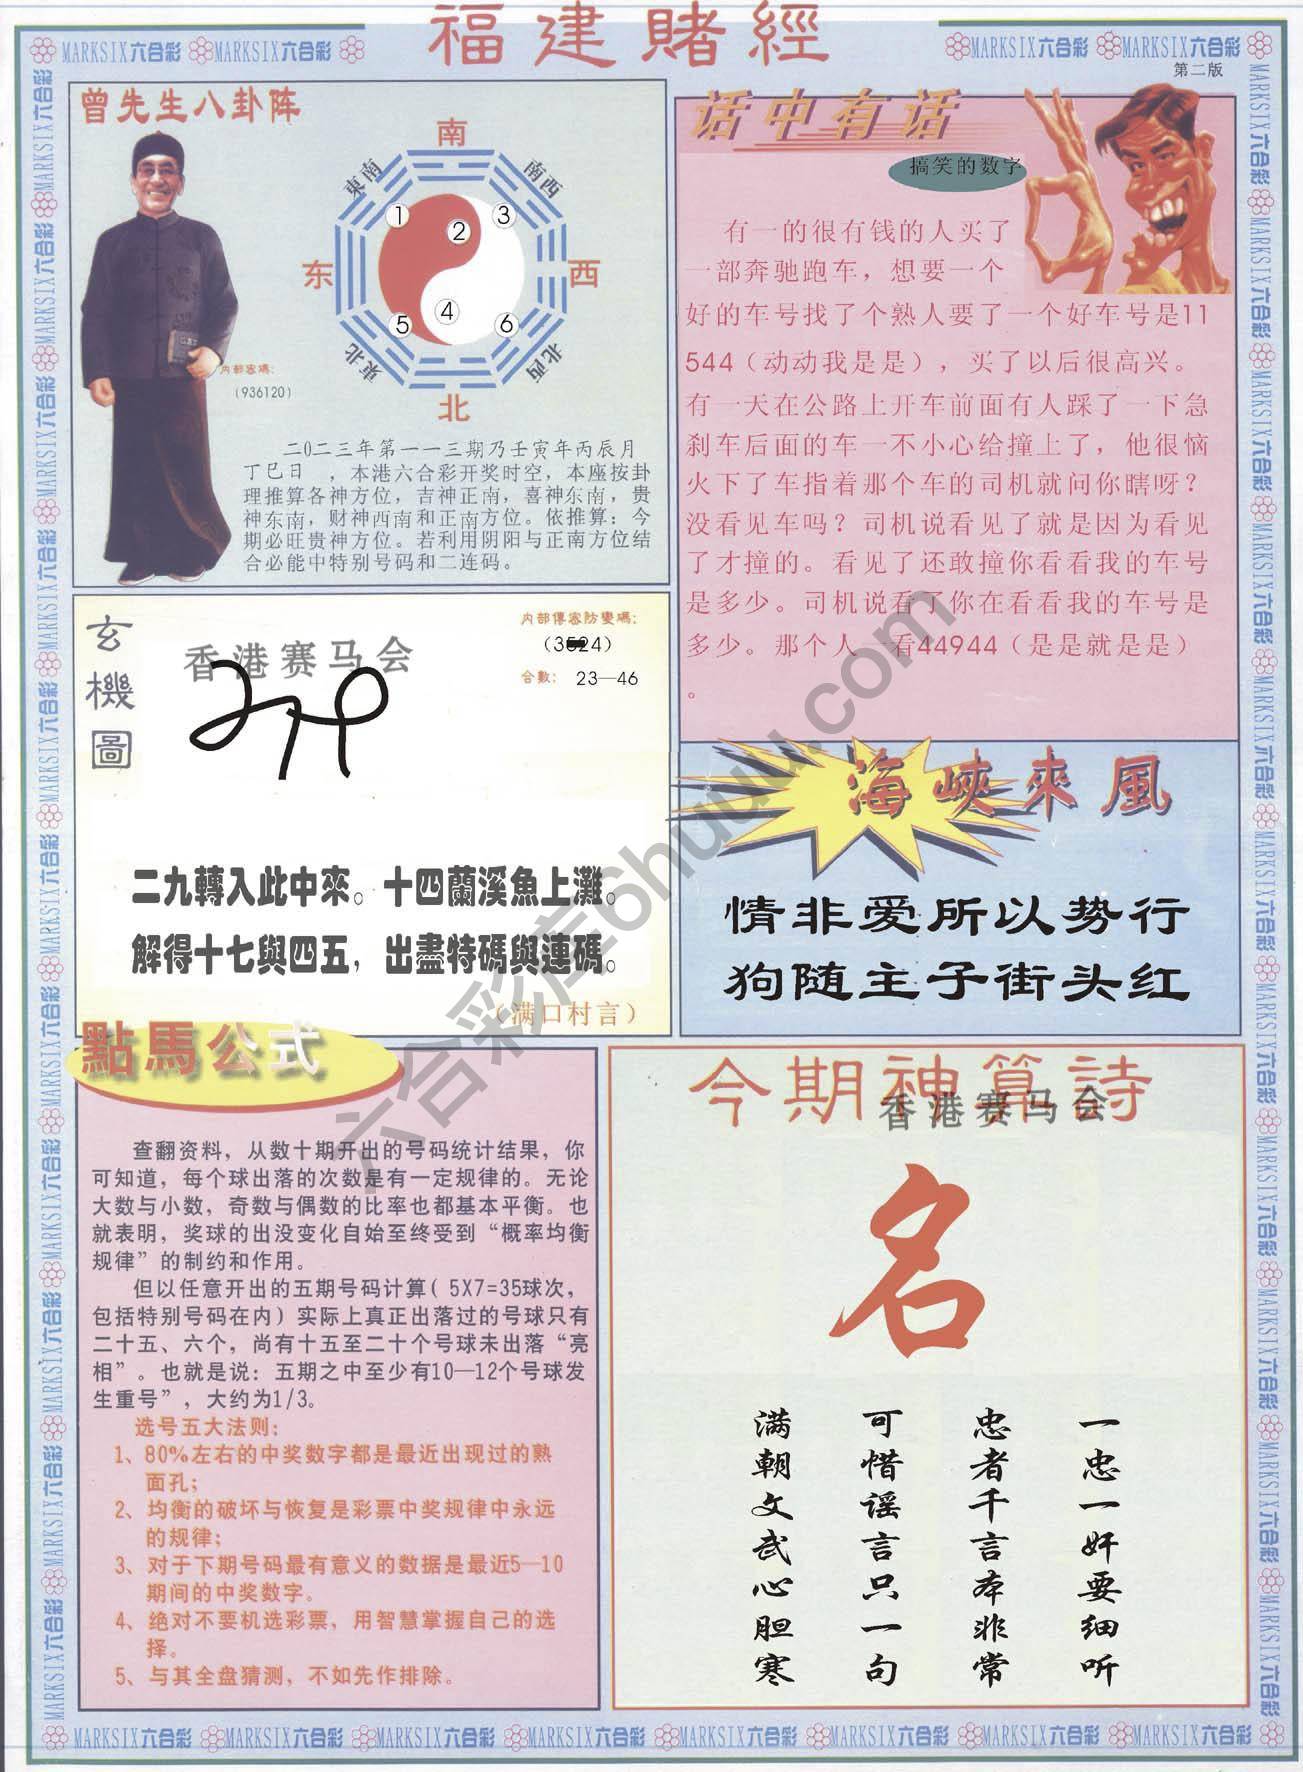 福建賭經
MARKSIX六合彩 MARKSIX六合彩
MARKSIX六合彩 MARKSIX六合彩
第二版
曾先生八卦阵
南
東南
南西
1
2
3
东
西
4
5
6
東北
北西
北
内部密碼：
（936120）
二0二三年第一一三期乃壬寅年丙辰月
丁巳日 ，本港六合彩开奖时空，本座按卦
理推算各神方位，吉神正南，喜神东南，贵
神东南，财神西南和正南方位。依推算：今
期必旺贵神方位。若利用阴阳与正南方位结
合必能中特别号码和二连码。
话中有话
搞笑的数字
有一的很有钱的人买了
一部奔驰跑车，想要一个
好的车号找了个熟人要了一个好车号是11
544（动动我是是），买了以后很高兴。
有一天在公路上开车前面有人踩了一下急
刹车后面的车一不小心给撞上了，他很恼
火下了车指着那个车的司机就问你瞎呀？
没看见车吗？司机说看见了就是因为看见
了才撞的。看见了还敢撞你看看我的车号
是多少。司机说看了你在看看我的车号是
多少。那个人一看44944（是是就是是）
。
玄機圖
香港赛马会
内部傳密防變碼：
（3524）
合數： 23—46
二九轉入此中來。十四蘭溪魚上灘。
解得十七與四五，出盡特碼與連碼。
（满口村言）
海峽來風
情非爱所以势行
狗随主子街头红
點馬公式
查翻资料，从数十期开出的号码统计结果，你
可知道，每个球出落的次数是有一定规律的。无论
大数与小数，奇数与偶数的比率也都基本平衡。也
就表明，奖球的出没变化自始至终受到“概率均衡
规律”的制约和作用。
但以任意开出的五期号码计算（ 5X7=35球次，
包括特别号码在内）实际上真正出落过的号球只有
二十五、六个，尚有十五至二十个号球未出落“亮
相”。也就是说：五期之中至少有10—12个号球发
生重号”，大约为1/3。
选号五大法则：
1、80%左右的中奖数字都是最近出现过的熟
面孔；
2、均衡的破坏与恢复是彩票中奖规律中永远
的规律；
3、对于下期号码最有意义的数据是最近5—10
期间的中奖数字。
4、绝对不要机选彩票，用智慧掌握自己的选
择。
5、与其全盘猜测，不如先作排除。
今期神算詩
香港赛马会
名
一忠一奸要细听
忠者千言本非常
可惜谣言只一句
满朝文武心胆寒
六合彩库6huuu.com
MARKSIX六合彩 MARKSIX六合彩 MARKSIX六合彩 MARKSIX六合彩 MARKSIX六合彩 MARKSIX六合彩 MARKSIX六合彩 MARKSIX六合彩